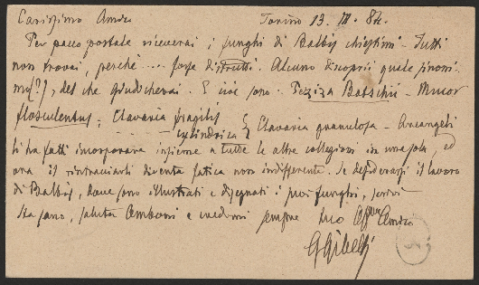 Carissimo Amico Torino 13. III. 84.
Per pacco postale riceverai i funghi di Balbis chiestimi. Tutti
non trovai, perchè .... forse distrutti. Alcuno scoprii quale sinoni-
mo(?), del che giudicherai. E cioè sono: Peziza Batschii - Mucor
flosculentus; Clavaria fragilis
cylindrica Clavaria granulosa - Arcangeli
li ha fatti incorporare insieme a tutte le altre collezioni in una sola, ed
ora il rintracciarli diventa fatica non indifferente. Se desiderassi il lavoro
di Balbis, dove sono illustrati e disegnati i suoi funghi, scrivi
Sta sano, saluta e credimi sempre tuo Aff Amico
GGibelli